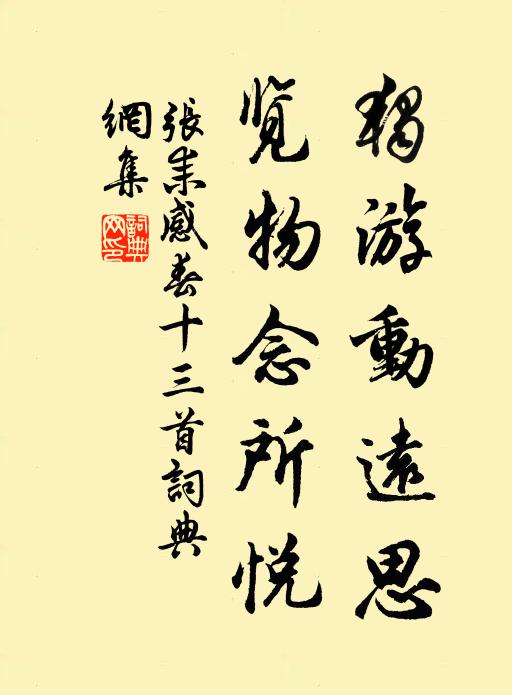 獨游動遠思
览物念所悦
張耒感春十三首詞典
網集
詞典網印